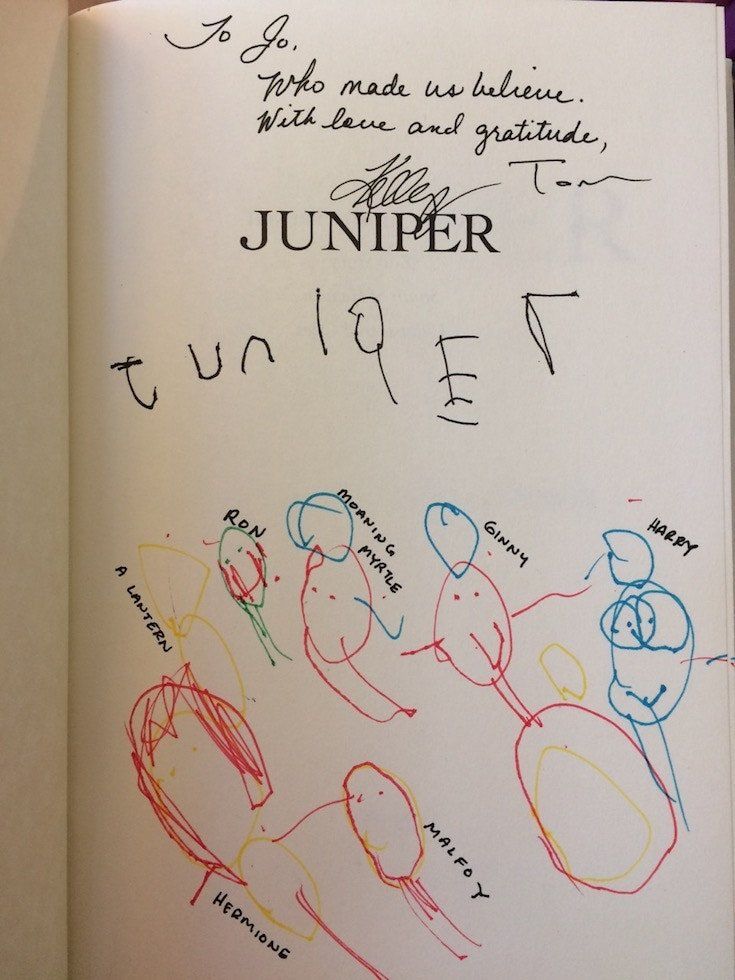 To Jo,
Who made us believe.
With love and gratitude,
Kelley Tom
JUNIPER
JUNIPER
RON
MOANING
MYRTLE
GINNY
HARRY
A LANTERN
MALFOY
HERMIONE